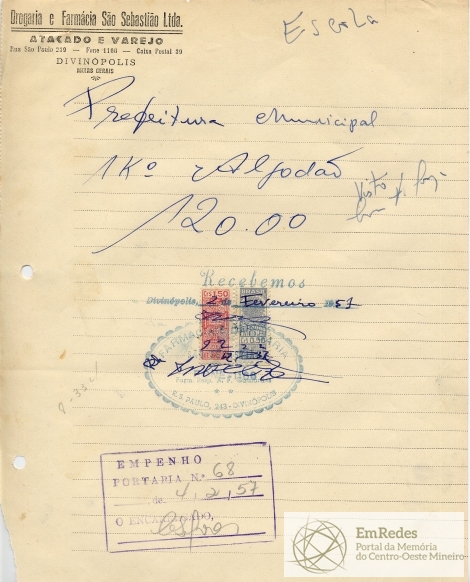 Drogaria e Farmácia São Sebastião Ltda.
ATACADO E VAREJO
Rua São Paulo 249 — Fone 1166 — Caixa Postal 39
DIVINÓPOLIS
MINAS GERAIS
Escola
Prefeitura Municipal
1 Kº Algodão
120.00
Visto
Recebemos
Divinópolis, 2 de Fevereiro 1957
E. S. PAULO, 243 - DIVINÓPOLIS
EMPENHO
PORTARIA N.º 68
de 4, 2, 57
O ENCARREGADO,
EmRedes
Portal da Memória
do Centro-Oeste Mineiro